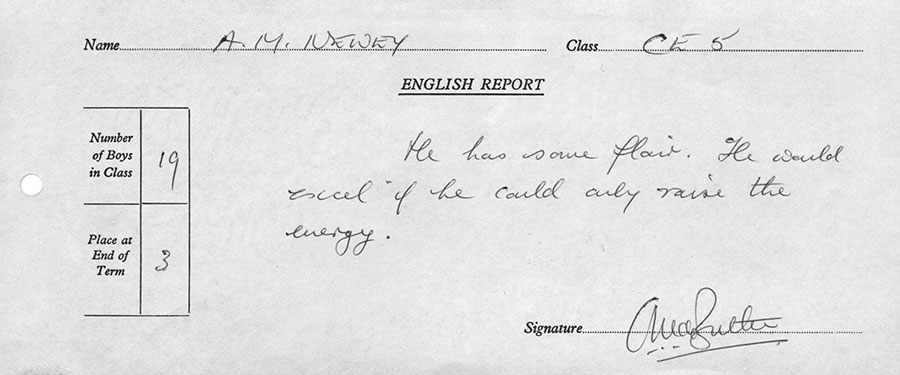 Name A. M. NEWEY Class CE 5
ENGLISH REPORT
Number
of Boys
in Class
19
Place at
End of
Term
3
He has some flair. He would
excel if he could only raise the
energy.
Signature